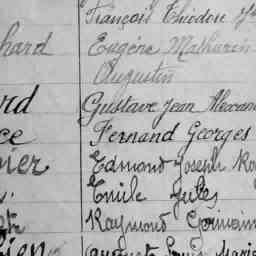 François Théodore
hard Eugène Mathurin
Augustin
rd Gustave Jean
ce Fernand Georges
Edmond Joseph
Emile Jules
Raymond Germain
Louis Marie